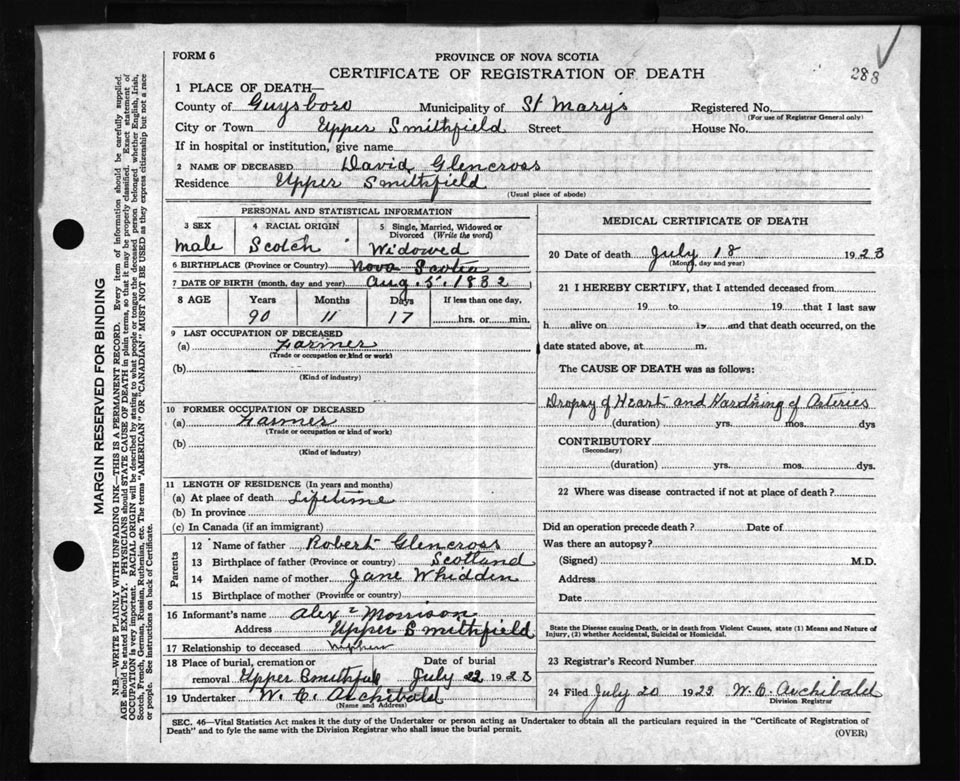 288
FORM 6
PROVINCE OF NOVA SCOTIA
CERTIFICATE OF REGISTRATION OF DEATH
1 PLACE OF DEATH—
County of Guysboro Municipality of St Mary's Registered No.
(For use of Registrar General only)
City or Town Upper Smithfield Street House No.
If in hospital or institution, give name
2 NAME OF DECEASED David Glencross
Residence Upper Smithfield
(Usual place of abode)
PERSONAL AND STATISTICAL INFORMATION
3 SEX 4 RACIAL ORIGIN 5 Single, Married, Widowed or Divorced (Write the word)
Male Scotch Widowed
6 BIRTHPLACE (Province or Country) Nova Scotia
7 DATE OF BIRTH (month, day and year) Aug. 5. 1832
8 AGE Years Months Days If less than one day,
90 11 17 hrs. or min.
9 LAST OCCUPATION OF DECEASED
(a) Farmer
(Trade or occupation or kind or work)
(b)
(Kind of industry)
10 FORMER OCCUPATION OF DECEASED
(a) Farmer
(Trade or occupation or kind of work)
(b)
(Kind of industry)
11 LENGTH OF RESIDENCE (In years and months)
(a) At place of death Lifetime
(b) In province
(c) In Canada (if an immigrant)
Parents
12 Name of father Robert Glencross
13 Birthplace of father (Province or country) Scotland
14 Maiden name of mother Jane Whidden
15 Birthplace of mother (Province or country)
16 Informant's name Alex Morrison
Address Upper Smithfield
17 Relationship to deceased nephew
18 Place of burial, cremation or Date of burial
removal Upper Smithfield July 22 1923
19 Undertaker W. E. Archibald
(Name and Address)
MEDICAL CERTIFICATE OF DEATH
20 Date of death July 18 1923
(Month, day and year)
21 I HEREBY CERTIFY, that I attended deceased from
19 to 19 that I last saw
h alive on 19 and that death occurred, on the
date stated above, at m.
The CAUSE OF DEATH was as follows:
Dropsy of Heart and Hardning of Arteries
(duration) yrs. mos. dys
CONTRIBUTORY
(Secondary)
(duration) yrs. mos. dys.
22 Where was disease contracted if not at place of death?
Did an operation precede death? Date of
Was there an autopsy?
(Signed) M.D.
Address
Date
State the Disease causing Death, or in death from Violent Causes, state (1) Means and Nature of
Injury, (2) whether Accidental, Suicidal or Homicidal.
23 Registrar's Record Number
24 Filed July 20 1923 W. E. Archibald
Division Registrar
SEC. 46—Vital Statistics Act makes it the duty of the Undertaker or person acting as Undertaker to obtain all the particulars required in the "Certificate of Registration of
Death" and to fyle the same with the Division Registrar who shall issue the burial permit.
(OVER)
MARGIN RESERVED FOR BINDING
N.B.—WRITE PLAINLY WITH UNFADING INK—THIS IS A PERMANENT RECORD. Every item of information should be carefully supplied.
AGE should be stated EXACTLY. PHYSICIANS should STATE CAUSE OF DEATH in plain terms, so that it may be properly classified. Exact statement of
OCCUPATION is very important. RACIAL ORIGIN will be described by stating to what people or tongue the deceased person belonged whether English, Irish,
Scotch, French, German, Russian, Ruthenian, etc. The terms "AMERICAN" OR "CANADIAN" MUST NOT BE USED as they express citizenship but not a race
or people. See instructions on back of Certificate.